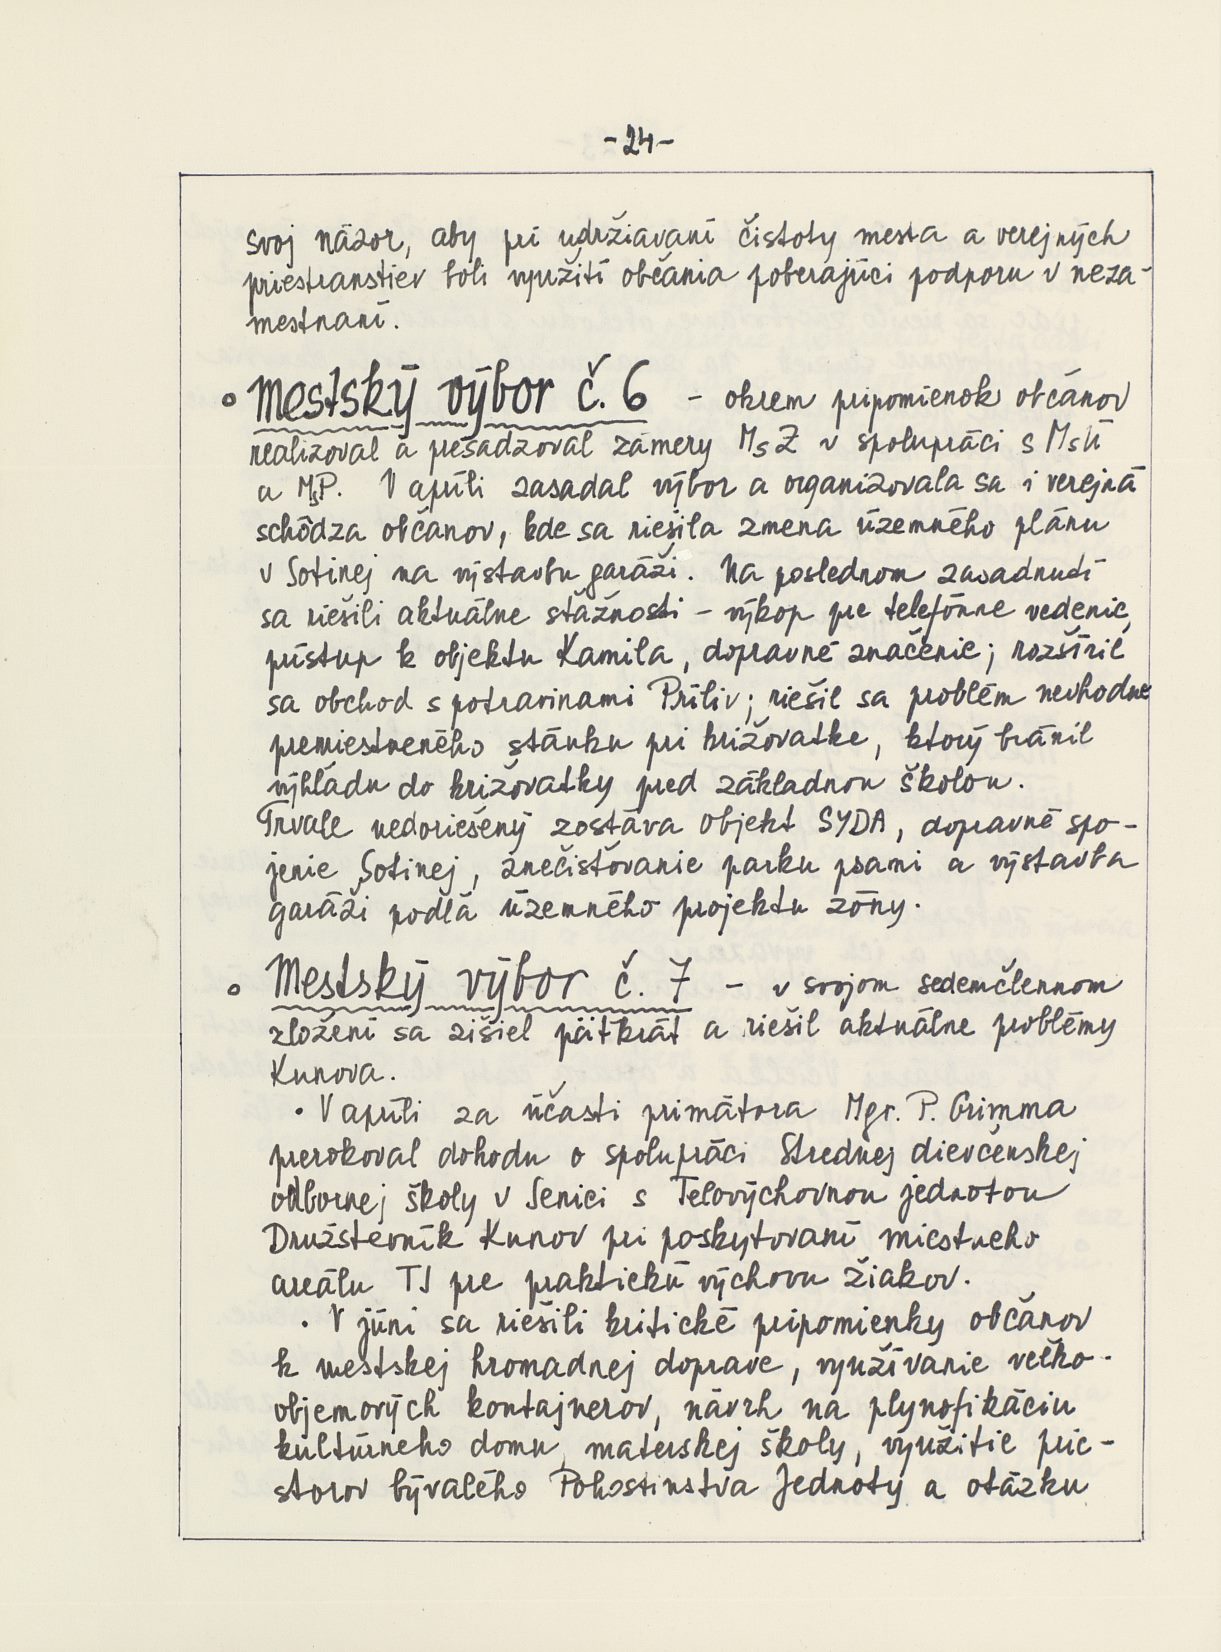 -24-
svoj názor, aby pri udržiavaní čistoty mesta a verejných
priestranstiev boli využití občania poberajúci podporu v neza-
mestnaní.
Mestský výbor č. 6 - okrem pripomienok občanov
realizoval a presadzoval zámery MsZ v spolupráci s MsÚ
a MsP. V apríli zasadal výbor a organizovala sa i verejná
schôdza občanov, kde sa riešila zmena územného plánu
v Sotinej na výstavbu garáží. Na poslednom zasadnutí
sa riešili aktuálne stážnosti - výkop pre telefónne vedenie,
prístup k objektu Kamila, dopravné značenie; rozšíril
sa obchod s potravinami Príliv; riešil sa problém nevhodne
premiestneného stánku pri križovatke, ktorý bránil
výhľadu do križovatky pred základnou školou.
Trvale nedoriešený zostáva objekt SYDA, dopravné spo-
jenie Sotinej, znečisťovanie parku psami a výstavba
garáží podľa územného projektu zóny.
Mestský výbor č. 7 - v svojom sedemčlennom
zložení sa zišiel päťkrát a riešil aktuálne problémy
Kunova.
• V apríli za účasti primátora Mgr. P. Grimma
prerokoval dohodu o spolupráci Strednej dievčenskej
odbornej školy v Senici s Telovýchovnou jednotou
Družstevník Kunov pri poskytovaní miestneho
areálu TJ pre praktickú výchovu žiakov.
• V júni sa riešili kritické pripomienky občanov
k mestskej hromadnej doprave, využívanie veľko-
objemových kontajnerov, návrh na plynofikáciu
kultúrneho domu, materskej školy, využitie prie-
storov bývalého Pohostinstva Jednoty a otázku